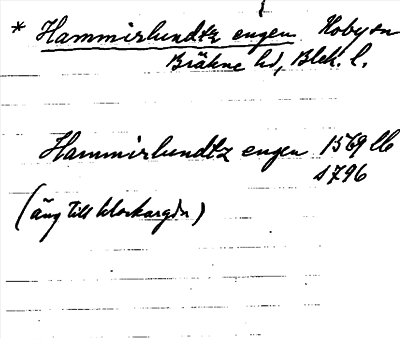 * Hammirlundtz engen Hoby sn
Bräkne hd, Blek. l.
Hammirlundtz engen 1569 lb
s 796
(äng till klockargdn)